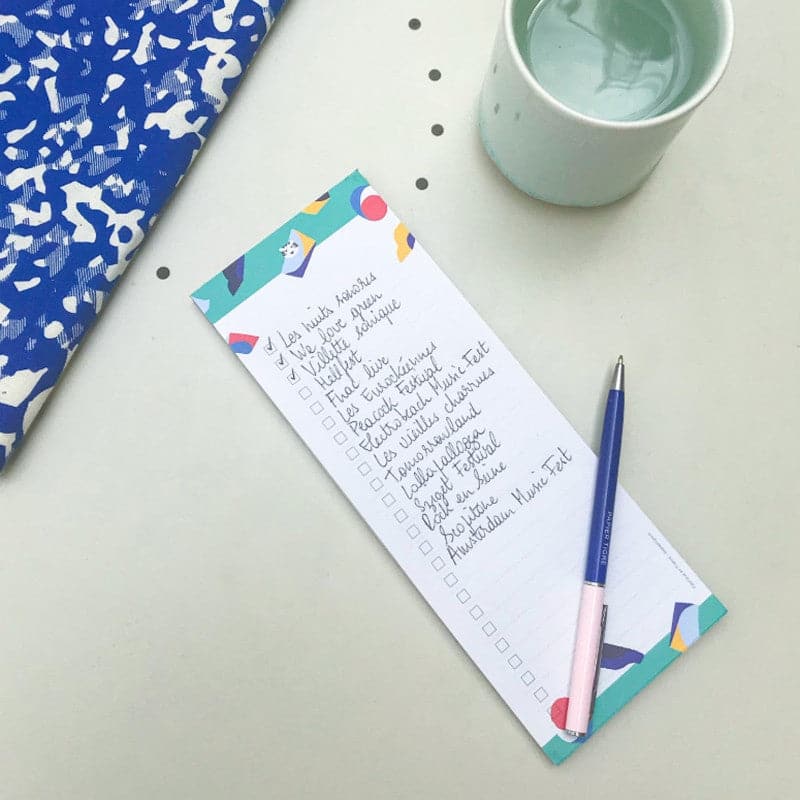 Les nuits sonores
We love green
Villette sonique
Hellfest
Fnac live
Les Eurockéennes
Peacock Festival
Electrobeach Music Fest
Les vieilles charrues
Tomorrowland
Lollapallooza
Sziget Festival
Rock en Seine
Scopitone
Amsterdam Music Fest
PAPIER TIGRE